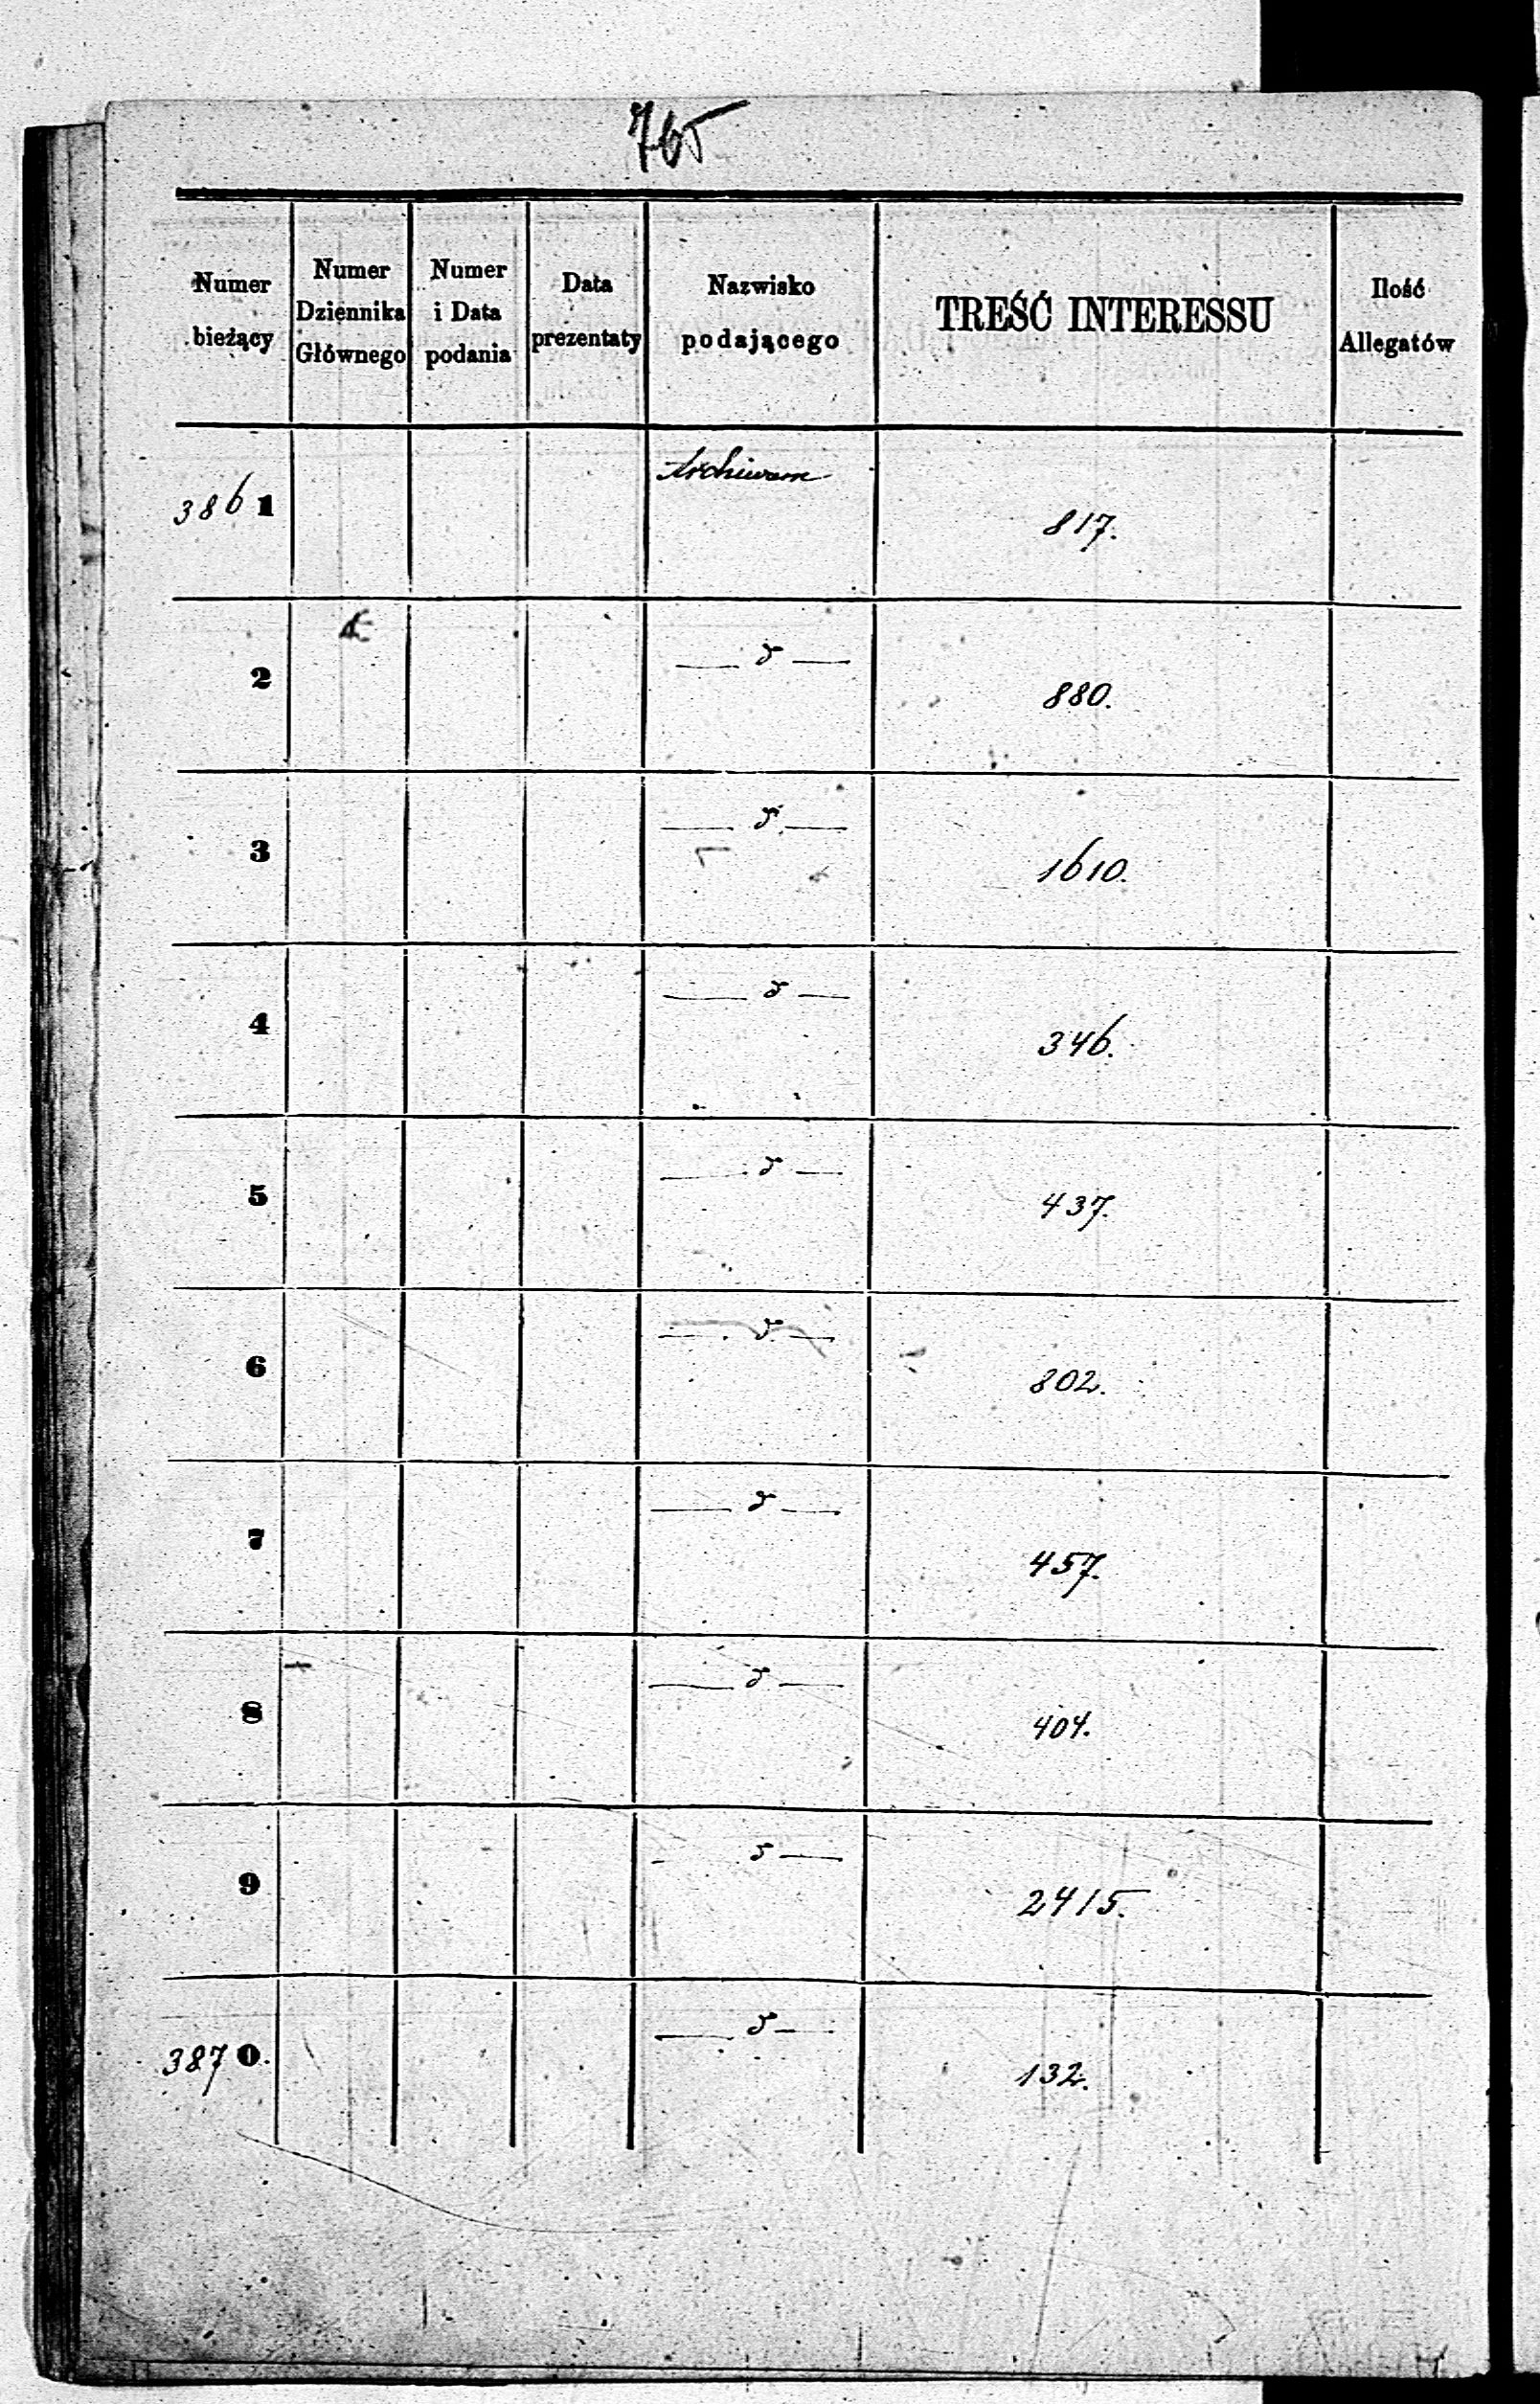 765
Numer bieżący | Numer Dziennika Głównego | Numer i Data podania | Data prezentaty | Nazwisko podającego | TREŚĆ INTERESSU | Ilość Allegatów
3861 Archiwum 817.
2 — d — 880.
3 — d — 1610.
4 — d — 346.
5 — d — 437.
6 — d — 802.
7 — d — 457.
8 — d — 404.
9 — d — 2415.
3870. — d — 132.